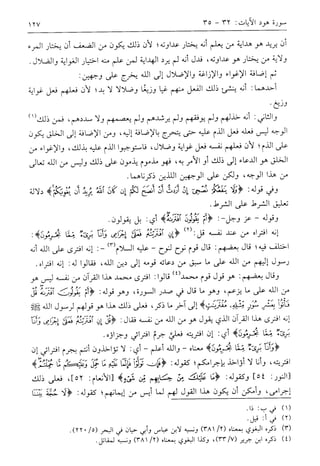 سورة هود الآيات: ٣٢ - ٣٥ ١٢٧
أن يريد هو هداية من يعلم أنه يختار عداوته؛ لأن ذلك يكون من الضعف أن يختار المرء
ولاية من يختار هو عداوته، فدل أنه لم يرد الهداية لمن علم منه اختيار الغواية والضلال.
ثم إضافة الإغواء والإزاغة والإضلال إلى الله يخرج على وجهين:
أحدهما: أنه ينشئ ذلك الفعل منهم غيا وزيغًا وضلالا لا بد؛ لأن فعلهم فعل غواية
وزيغ.
والثاني: أنه خذلهم ولم يوفقهم ولم يرشدهم ولم يعصمهم ولا سددهم، فمن ذلك(١)
الوجه ليس فعله فعل الذم عليه حتى يتحرج بالإضافة إليه، ومن الإضافة إلى الخلق يكون
على الذم؛ لأن فعلهم نفسه فعل غواية وضلال، فاستوجبوا الذم عليه بذلك، والإغواء من
الخلق هو الدعاء إلى ذلك أو الأمر به، فهو مذموم يذمون على ذلك وليس من الله تعالى
من هذا الوجه، ولكن على الوجهين اللذين ذكرناهما.
وفي قوله: ﴿وَلَا يَنفَعُكُمْ نُصْحِي إِنْ أَرَدتُّ أَنْ أَنصَحَ لَكُمْ إِن كَانَ اللَّهُ يُرِيدُ أَن يُغْوِيَكُمْ﴾ دلالة
تعليق الشرط على الشرط.
وقوله - عز وجل -: ﴿أَمْ يَقُولُونَ افْتَرَاهُ﴾ أي: بل يقولون.
إنه افتراه من عند نفسه قل:(٢) ﴿إِنِ افْتَرَيْتُهُ فَعَلَيَّ إِجْرَامِي وَأَنَا بَرِيءٌ مِّمَّا تُجْرِمُونَ﴾:
اختلف فيه؛ قال بعضهم: قال قوم نوح لنوح - عليه السلام(٣) -: إنه افترى على الله أنه
رسول إليهم من الله على ما سبق من دعائه قومه إلى دين الله، فقالوا له: إنه افتراه.
وقال بعضهم: هو قول قوم محمد(٤) قالوا: افترى محمد هذا القرآن من نفسه ليس هو
من الله على ما يزعم، وهو ما قال في صدر السورة، وهو قوله: ﴿أَمْ يَقُولُونَ افْتَرَاهُ قُلْ
فَأْتُوا بِعَشْرِ سُوَرٍ مِّثْلِهِ مُفْتَرَيَاتٍ﴾ إلى آخر ما ذكر، فعلى ذلك هذا هو قولهم لرسول الله ﷺ
إنه افترى هذا القرآن الذي يقول هو من الله من نفسه فقال: ﴿إِنِ افْتَرَيْتُهُ فَعَلَيَّ إِجْرَامِي وَأَنَا
بَرِيءٌ مِّمَّا تُجْرِمُونَ﴾ أي: إن افتريته فعليّ جرم افترائي وجزاؤه.
﴿وَأَنَا بَرِيءٌ مِّمَّا تُجْرِمُونَ﴾ معناه - والله أعلم - أي: لا تؤاخذون أنتم بجرم افترائي إن
افتريته، وأنا لا أؤاخذ بإجرامكم؛ كقوله: ﴿فَإِن تَوَلَّوْا فَإِنَّمَا عَلَيْهِ مَا حُمِّلَ وَعَلَيْكُم مَّا حُمِّلْتُمْ﴾
[النور: ٥٤] وكقوله: ﴿مَا عَلَيْكَ مِنْ حِسَابِهِم مِّن شَيْءٍ﴾ [الأنعام: ٥٢]، فعلى ذلك
إجرامي، وأمكن أن يكون هذا القول لهم لما أيس من إيمانهم؛ كقوله: ﴿لَا حُجَّةَ بَيْنَنَا
(١) في ب: ذا.
(٢) في أ: قل.
(٣) ذكره البغوي بمعناه (٣٨١/٢) ونسبه لابن عباس وأبي حيان في البحر (٢٢٠/٥).
(٤) ذكره ابن جرير (٣٣/٧)، وكذا البغوي بمعناه (٣٨١/٢) ونسبه لمقاتل.